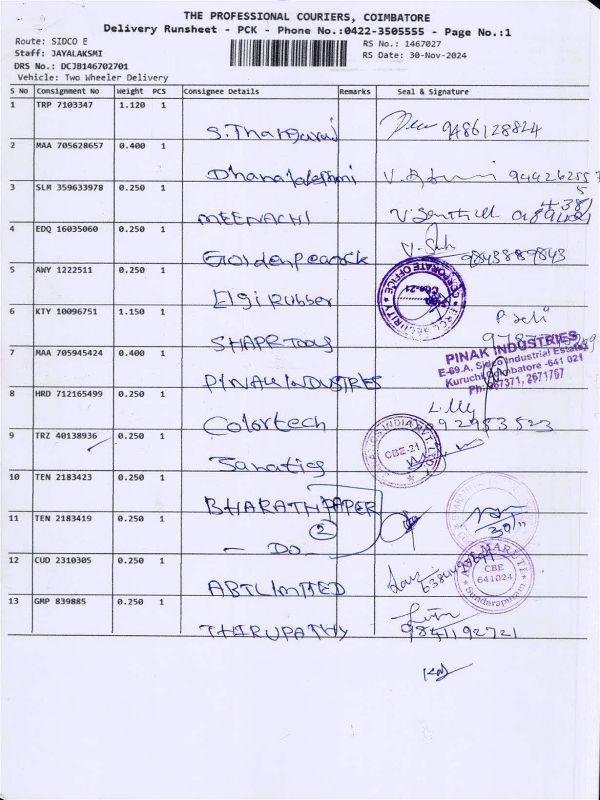 THE PROFESSIONAL COURIERS, COIMBATORE
Delivery Runsheet - PCK - Phone No.:0422-3505555 - Page No.:1
Route: SIDCO E
RS No.: 1467027
Staff: JAYALAKSMI
RS Date: 30-Nov-2024
DRS No.: DCJB146702701
Vehicle: Two Wheeler Delivery
S No Consignment No Weight PCS Consignee Details Remarks Seal & Signature
1 TRP 7103347 1.120 1
S.Thangaraj 9486128824
2 MAA 705628657 0.400 1
Dhanalakshmi
3 SLM 359633978 0.250 1
MEENACHI
4 EDQ 16035060 0.250 1
Goldenpeacock 9843889843
5 AWY 1222511 0.250 1
CORPORATE OFFICE
CBE-21
Elgi Rubber
6 KTY 10096751 1.150 1
SHAPR TOOLS
7 MAA 705945424 0.400 1
PINAK INDUSTRIES
E-69.A, Sidco Industrial Estate
Kuruchi, Coimbatore -641 021
PINAK INDUSTRIES
8 HRD 712165499 0.250 1
Colortech
9 TRZ 40138936 0.250 1
CBE-21
Sanatics
10 TEN 2183423 0.250 1
BHARATH PAPER
11 TEN 2183419 0.250 1
2
30/11
- DO -
12 CUD 2310305 0.250 1
MARUTI
CBE
641024
Sundarapuram
ABT LIMITED
13 GMP 839885 0.250 1
THIRUPATHY 9841192721